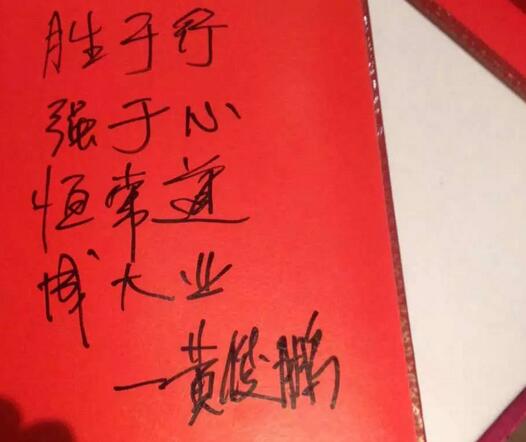 胜于行
强于心
恒常道
成大业
—黄俊鹏